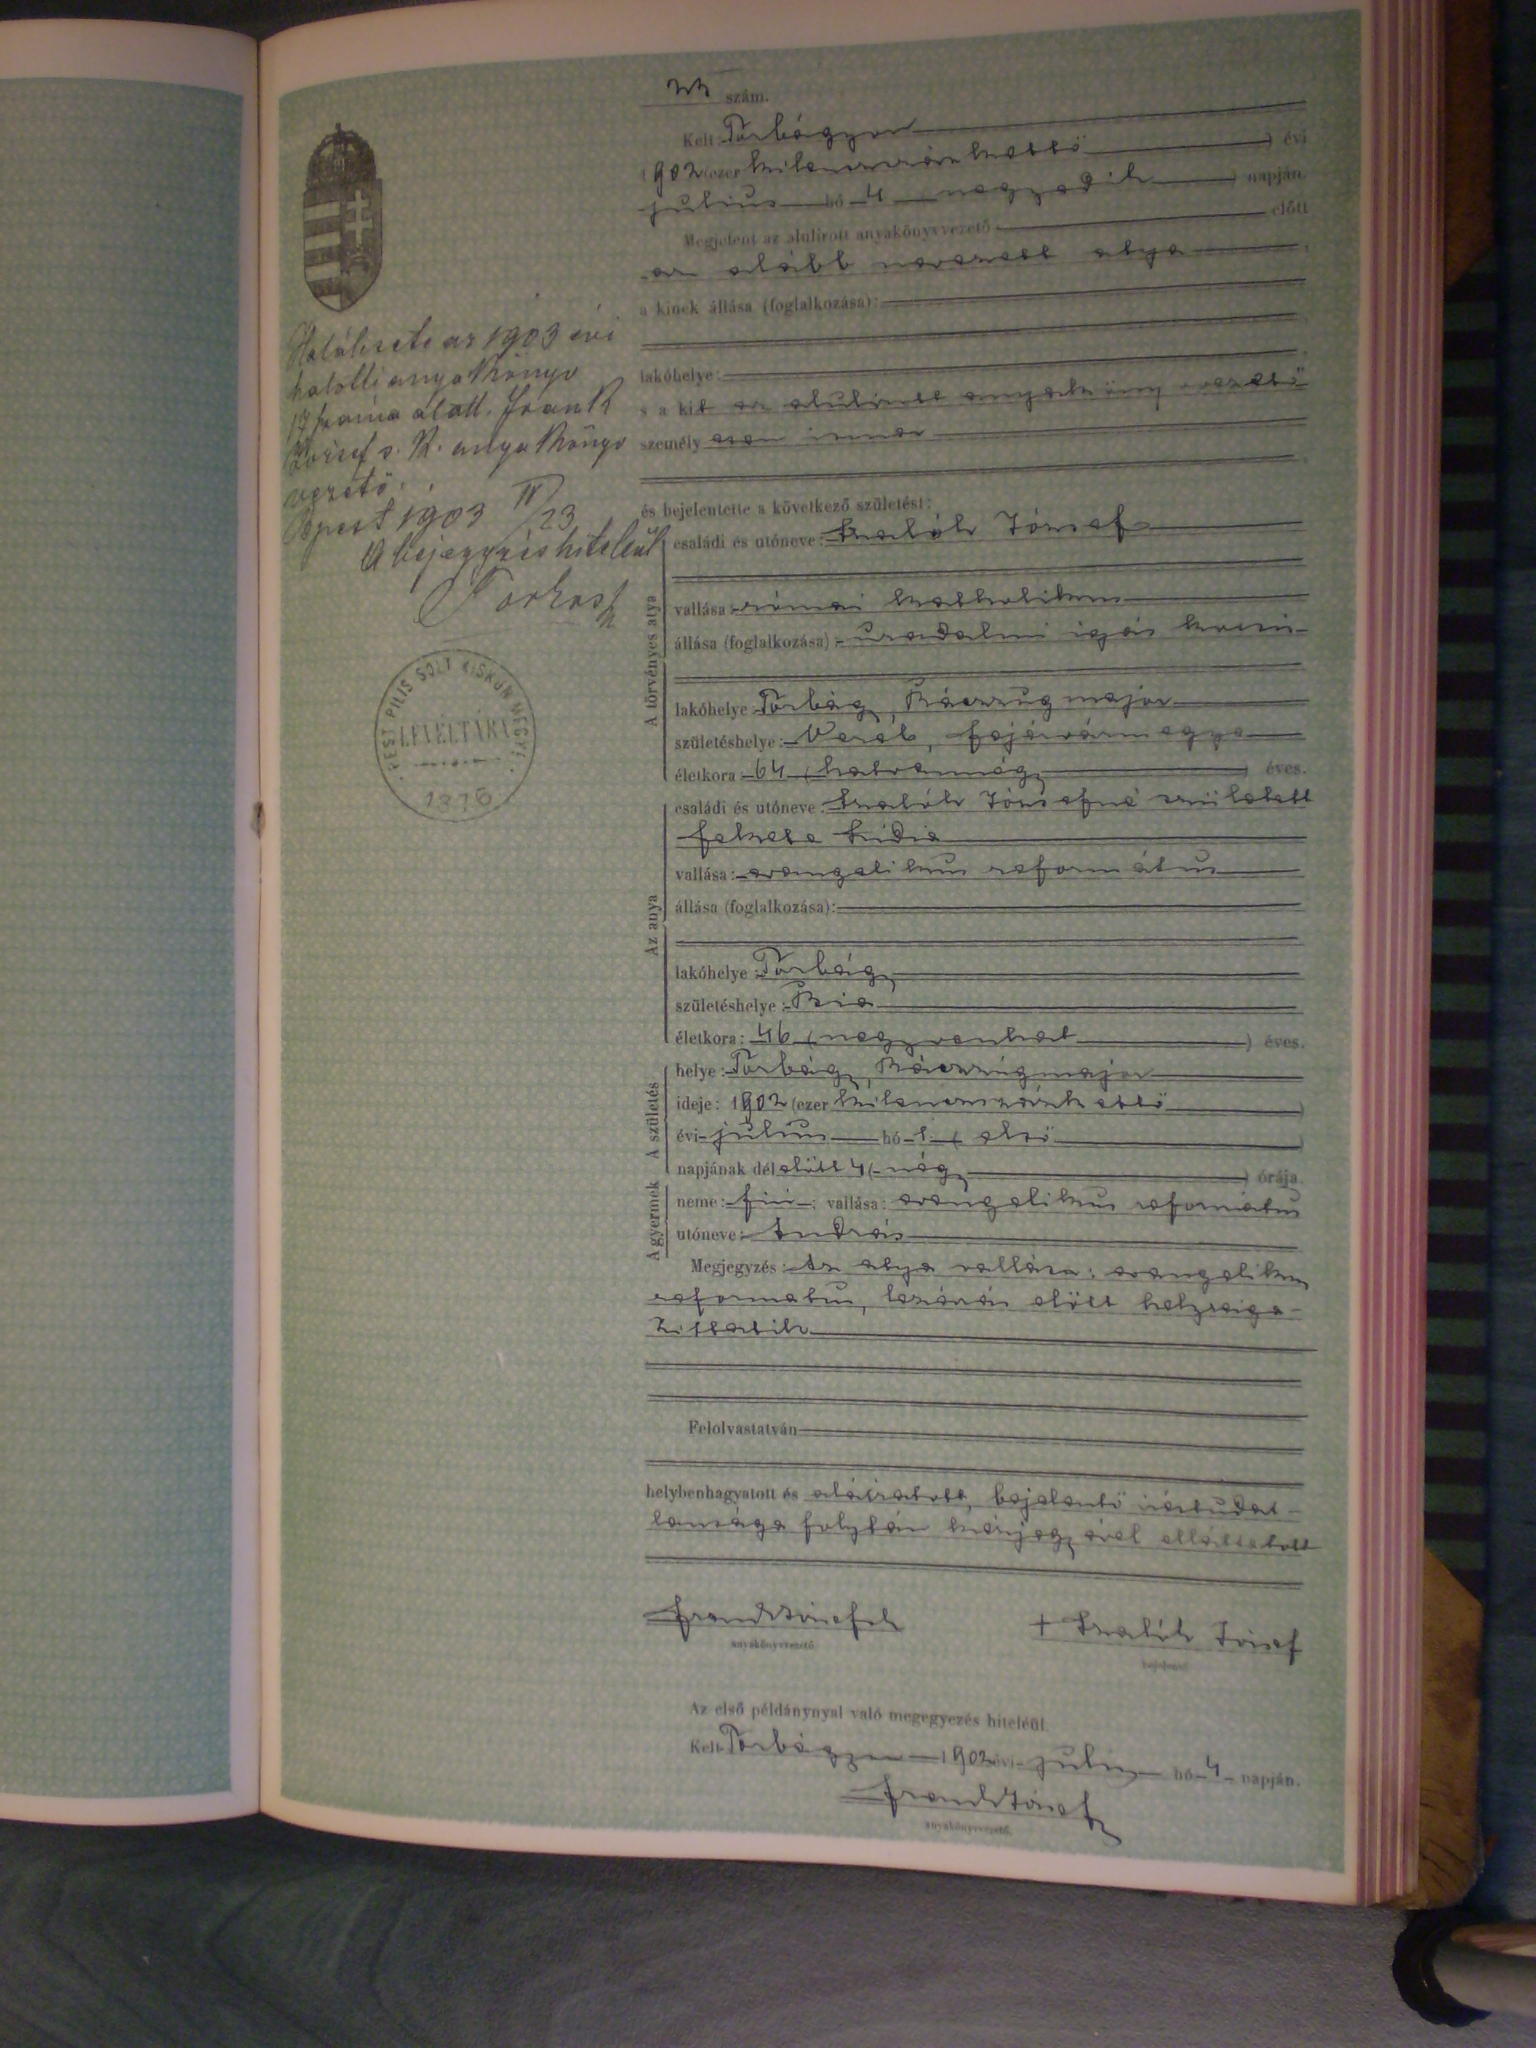 szám.
Kelt Torbágyon
1902 (ezer kilenczszázkettő) évi
julius hó 4 (negyedik) napján.
Megjelent az alulirott anyakönyvvezető előtt
az alább nevezett atya
a kinek állása (foglalkozása):
lakóhelye:
s a kit az alulirott anyakönyvvezető
személyesen ismer
és bejelentette a következő születést:
A törvényes atya
családi és utóneve: József
vallása: római katholikus
állása (foglalkozása): uradalmi igás kocsis
lakóhelye: Torbágy, major
születéshelye: Vereb, Fejérvármegye
életkora: 64 (hatvannégy) éves.
Az anya
családi és utóneve: Józsefné született
Fekete Lidia
vallása: evangelikus református
állása (foglalkozása):
lakóhelye: Torbágy
születéshelye: Bia
életkora: 46 (negyvenhat) éves.
A születés
helye: Torbágy, major
ideje: 1902 (ezer kilenczszázkettő)
évi julius hó 1 (első)
napjának délelőtt 4 (négy) órája.
A gyermek
neme: fiú; vallása: evangelikus református
utóneve: András
Megjegyzés: Az atya vallása: evangelikus
reformatus, lezárás előtt helyreiga-
zittatik
Felolvastatván
helybenhagyatott és aláiratott, bejelentő irástudat-
lansága folytán kézjegyével elláttatott
Frank József
anyakönyvvezető
+ József
bejelentő
Az első példánynyal való megegyezés hiteléül.
Kelt Torbágyon 1902 évi julius hó 4 napján.
Frank József
anyakönyvvezető.
Halálesete az 1903 évi
halotti anyakönyv
17 száma alatt. Frank
József s. k. anyakönyv
vezető.
Bpest 1903 IV/23
A bejegyzés hiteléül
Farkas
PEST PILIS SOLT KISKUN MEGYE
LEVELTÁRA
1876